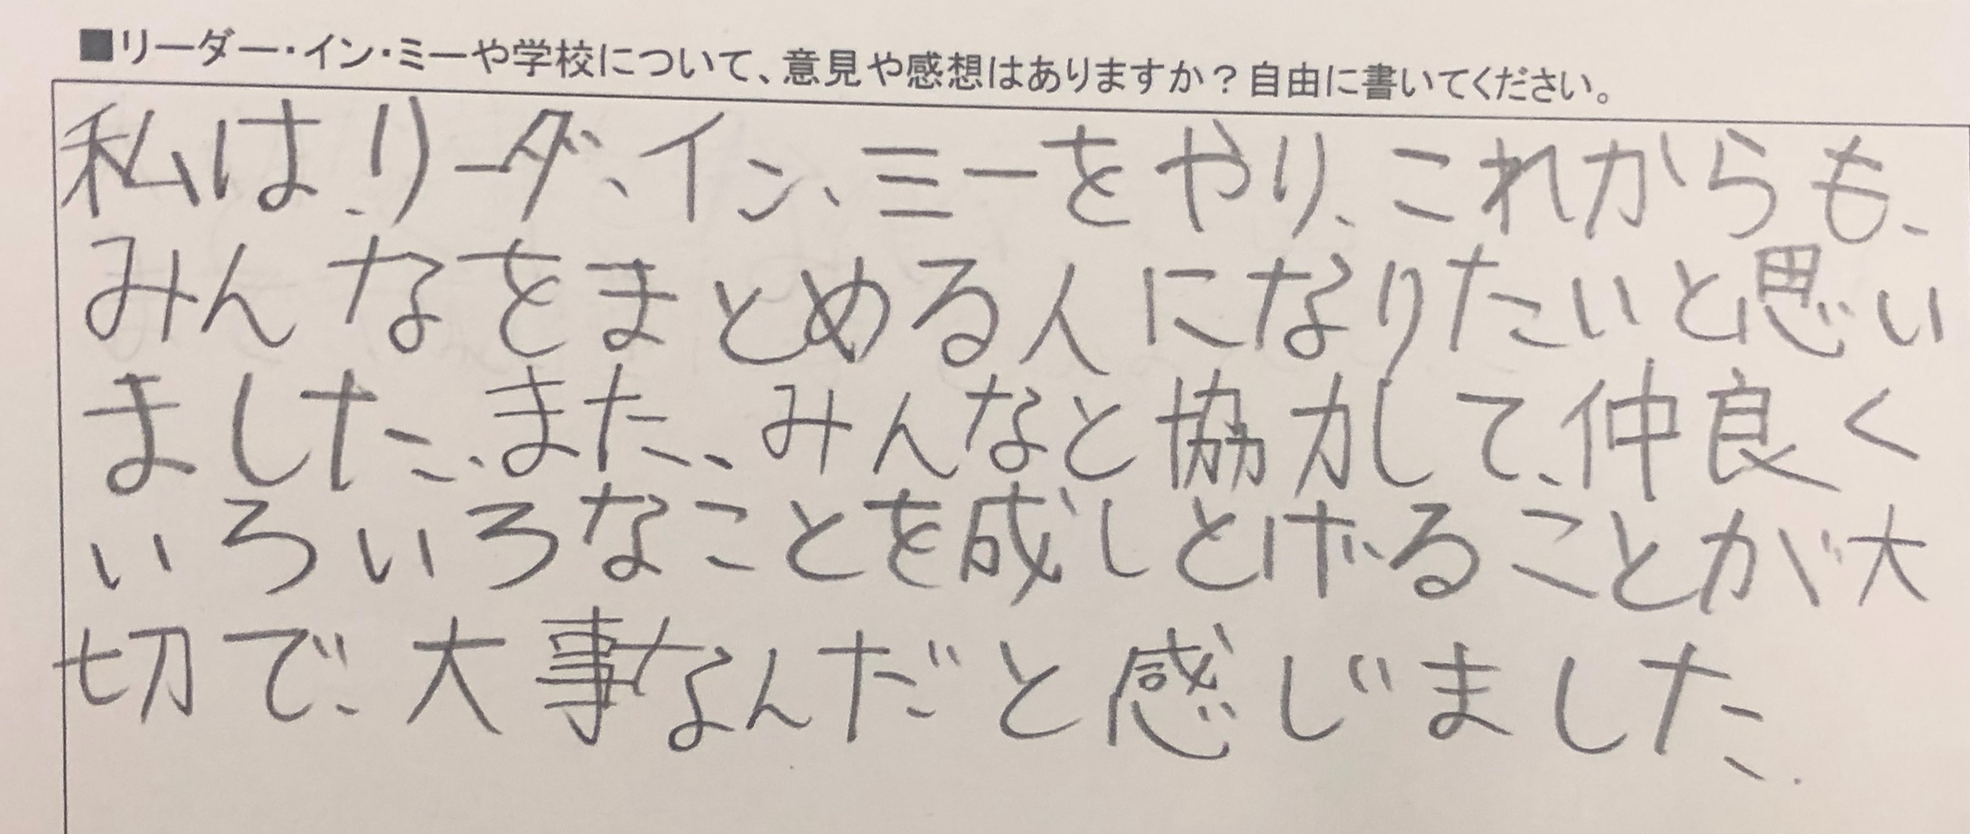 ■リーダー・イン・ミーや学校について、意見や感想はありますか？自由に書いてください。
私は、リーダ、イン、ミーをやり、これからも、
みんなをまとめる人になりたいと思い
ました、また、みんなと協力して、仲良く
いろいろなことを成しとげることが大
切で、大事なんだと感じました.